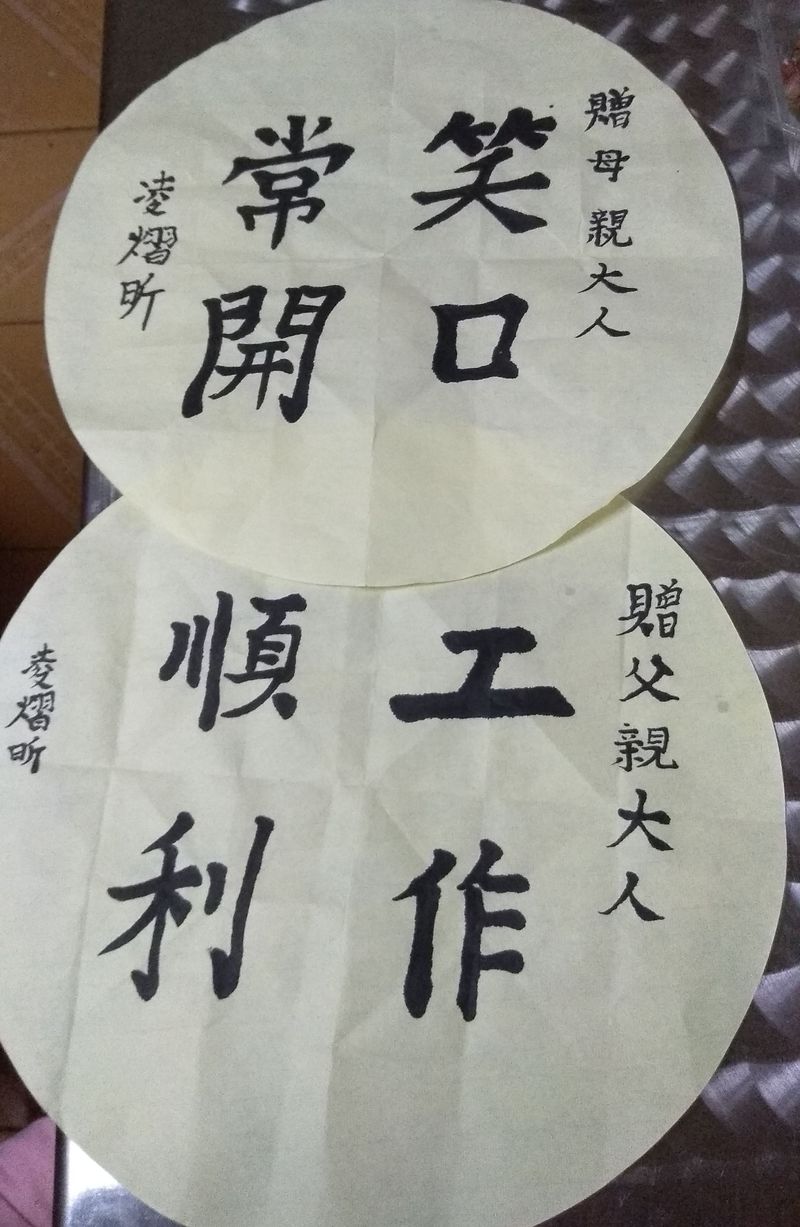 贈母親大人
笑口
常開
凌熠昕
贈父親大人
工作
順利
凌熠昕